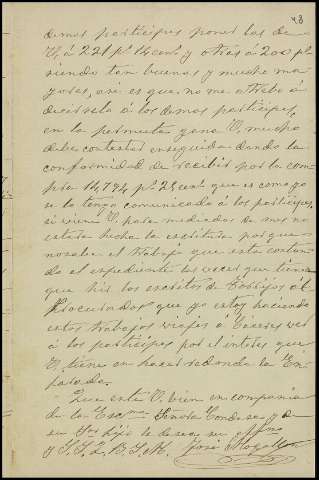 43
demas participes poner las de
V. á 221 pts 14 cent y otras á 200 pts
siendo tan buenas y mucho ma
yores, asi es que no me atrebo á
decirsela á los demas participes,
en la permuta gana V. mucho
debe contestar enseguida dando la
conformidad de recibir por la com
pra 14,794 pts 25 cent que es como ya
se lo tengo comunicado á los participes,
si viene V. para mediados de mes no
estará hecha la escritura porque
no sabe el trabajo que esta costan
do el expediente las veces que tiene
que hir los escritos de Torrejos al
Procurador que yo estoy haciendo
estos trabajos viajes á Caceres ver
á los participes por el interes que
V. tiene en hacer redonda la En
Que esté V. bien en compañia
de la Excma Señora Condesa y de
su Sor hijo le desea su
y S. S. Q. B. S. M. José